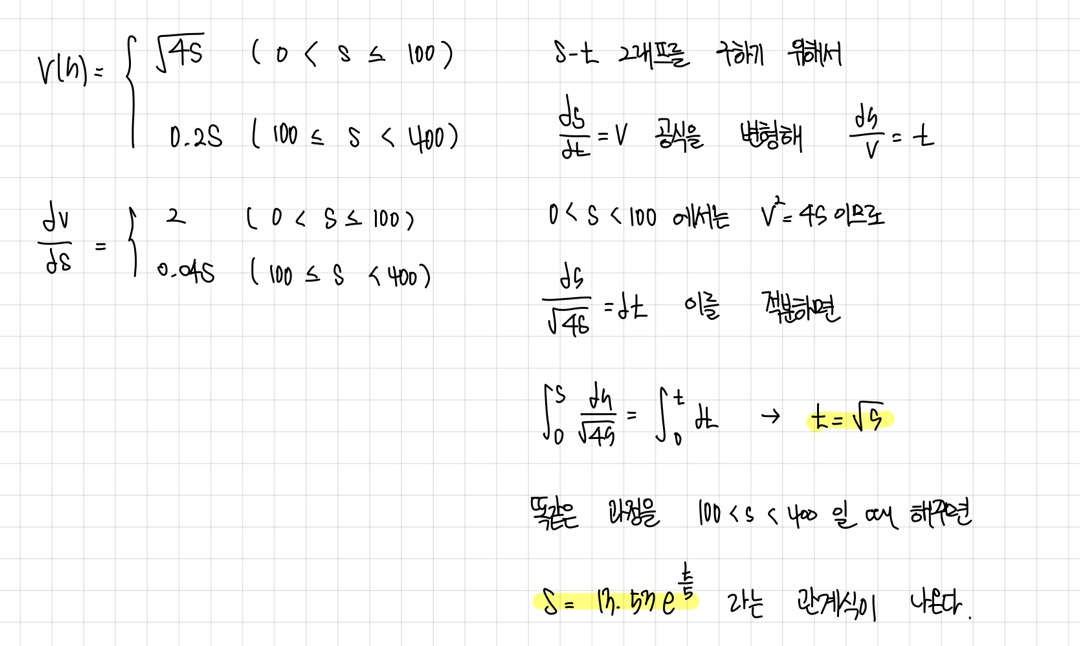 V(s) = { √4s ( 0 < s ≤ 100 )
0.2s ( 100 ≤ s < 400 )
dv/ds = { 2 ( 0 < s ≤ 100 )
0.04s ( 100 ≤ s < 400 )
s-t 그래프를 구하기 위해서
ds/dt = v 공식을 변형해 ds/v = t
0 < s < 100 에서는 v² = 4s 이므로
ds/√4s = dt 이를 적분하면
∫₀ˢ ds/√4s = ∫₀ᵗ dt → t = √s
똑같은 과정을 100 < s < 400 일 때 해주면
s = 13.53 e^(t/5) 라는 관계식이 나온다.